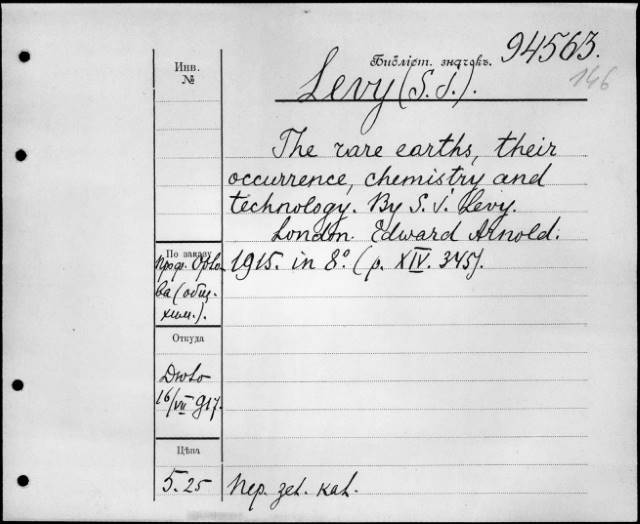 Библіот. значокъ. 94563.
146
Инв.
№
Levy (S. J.).
The rare earths, their
occurrence, chemistry and
technology. By S. J. Levy.
London. Edward Arnold.
1915. in 8°. (p. XIV. 345).
По заказу
Проф. Орло
ва (общ.
хим.).
Откуда
16/VII 917.
Цѣна
5.25
Пер. кал.